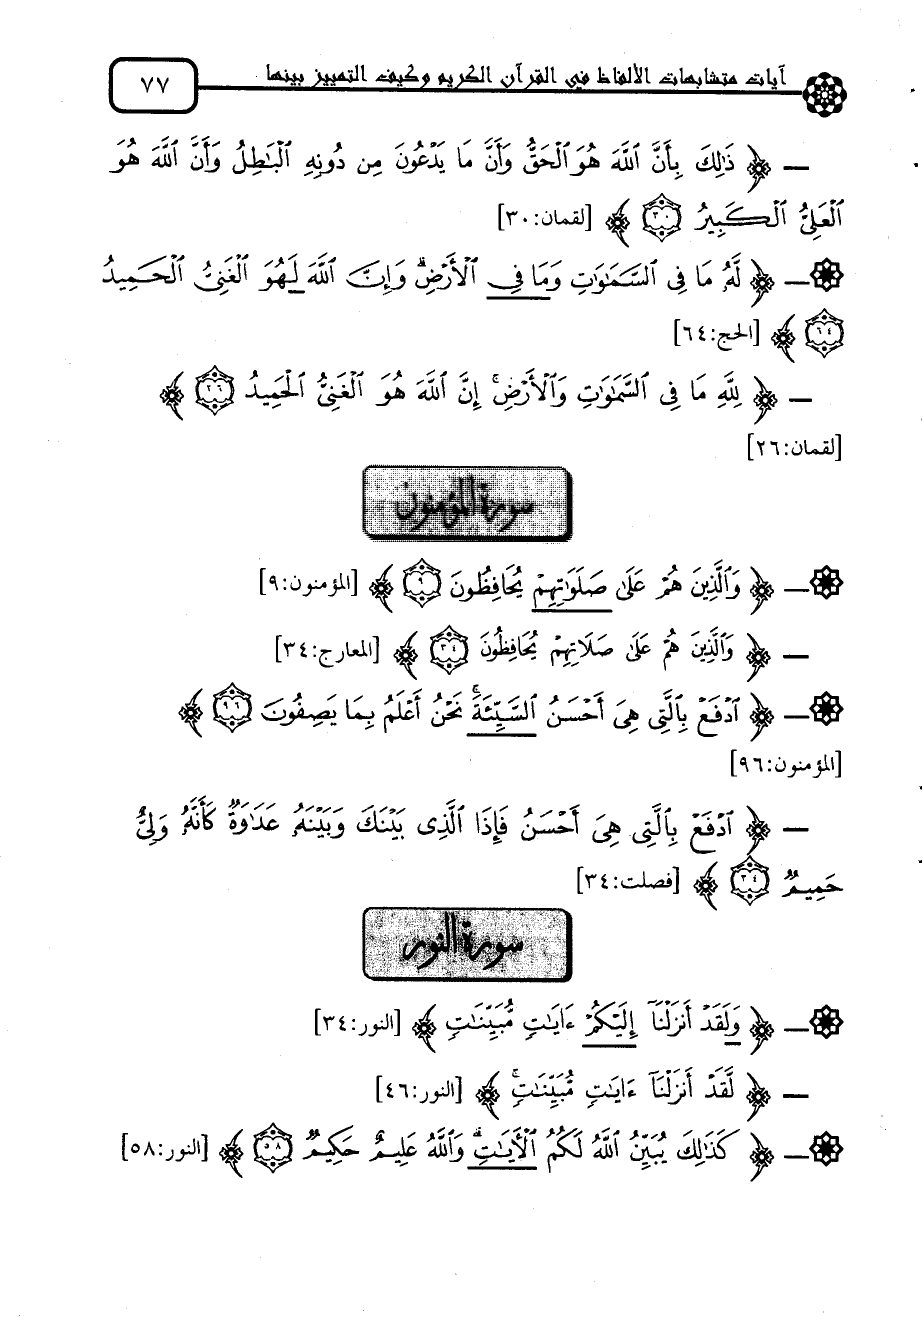 آيات متشابهات الألفاظ في القرآن الكريم وكيف التمييز بينها ٧٧
— ﴿ ذَٰلِكَ بِأَنَّ ٱللَّهَ هُوَ ٱلْحَقُّ وَأَنَّ مَا يَدْعُونَ مِن دُونِهِ ٱلْبَٰطِلُ وَأَنَّ ٱللَّهَ هُوَ
ٱلْعَلِىُّ ٱلْكَبِيرُ ٣٠ ﴾ [لقمان:٣٠]
— ﴿ لَّهُۥ مَا فِى ٱلسَّمَٰوَٰتِ وَمَا فِى ٱلْأَرْضِۗ وَإِنَّ ٱللَّهَ لَهُوَ ٱلْغَنِىُّ ٱلْحَمِيدُ
٦٤ ﴾ [الحج:٦٤]
— ﴿ لِلَّهِ مَا فِى ٱلسَّمَٰوَٰتِ وَٱلْأَرْضِۚ إِنَّ ٱللَّهَ هُوَ ٱلْغَنِىُّ ٱلْحَمِيدُ ٢٦ ﴾
[لقمان:٢٦]
سورة المؤمنون
— ﴿ وَٱلَّذِينَ هُمْ عَلَىٰ صَلَوَٰتِهِمْ يُحَافِظُونَ ٩ ﴾ [المؤمنون:٩]
— ﴿ وَٱلَّذِينَ هُمْ عَلَىٰ صَلَاتِهِمْ يُحَافِظُونَ ٣٤ ﴾ [المعارج:٣٤]
— ﴿ ٱدْفَعْ بِٱلَّتِى هِىَ أَحْسَنُ ٱلسَّيِّئَةَۚ نَحْنُ أَعْلَمُ بِمَا يَصِفُونَ ٩٦ ﴾
[المؤمنون:٩٦]
— ﴿ ٱدْفَعْ بِٱلَّتِى هِىَ أَحْسَنُ فَإِذَا ٱلَّذِى بَيْنَكَ وَبَيْنَهُۥ عَدَٰوَةٌ كَأَنَّهُۥ وَلِىٌّ
حَمِيمٌ ٣٤ ﴾ [فصلت:٣٤]
سورة النور
— ﴿ وَلَقَدْ أَنزَلْنَآ إِلَيْكُمْ ءَايَٰتٍ مُّبَيِّنَٰتٍ ﴾ [النور:٣٤]
— ﴿ لَّقَدْ أَنزَلْنَآ ءَايَٰتٍ مُّبَيِّنَٰتٍۚ ﴾ [النور:٤٦]
— ﴿ كَذَٰلِكَ يُبَيِّنُ ٱللَّهُ لَكُمُ ٱلْأَيَٰتِۗ وَٱللَّهُ عَلِيمٌ حَكِيمٌ ٥٨ ﴾ [النور:٥٨]